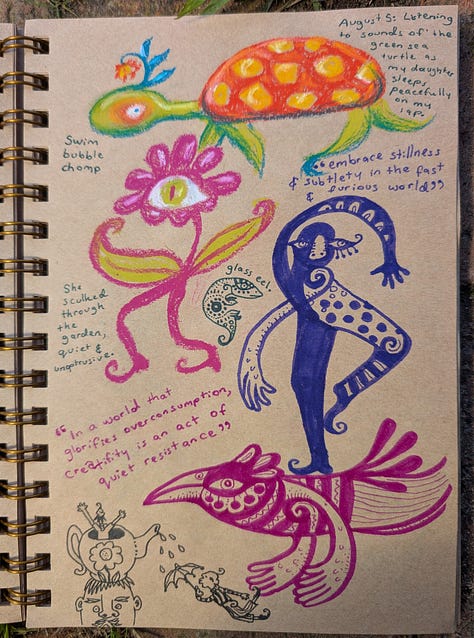 August 5: Listening
to sounds of the
green sea
turtle as
my daughter
sleeps
peacefully
on my
lap.
Swim
bubble
chomp
"embrace stillness
& subtlety in the fast
& furious world"
glass eel.
She
sculked
through
the
garden,
quiet &
unobtrusive.
"In a world that
glorifies overconsumption,
creativity is an act of
quiet resistance"